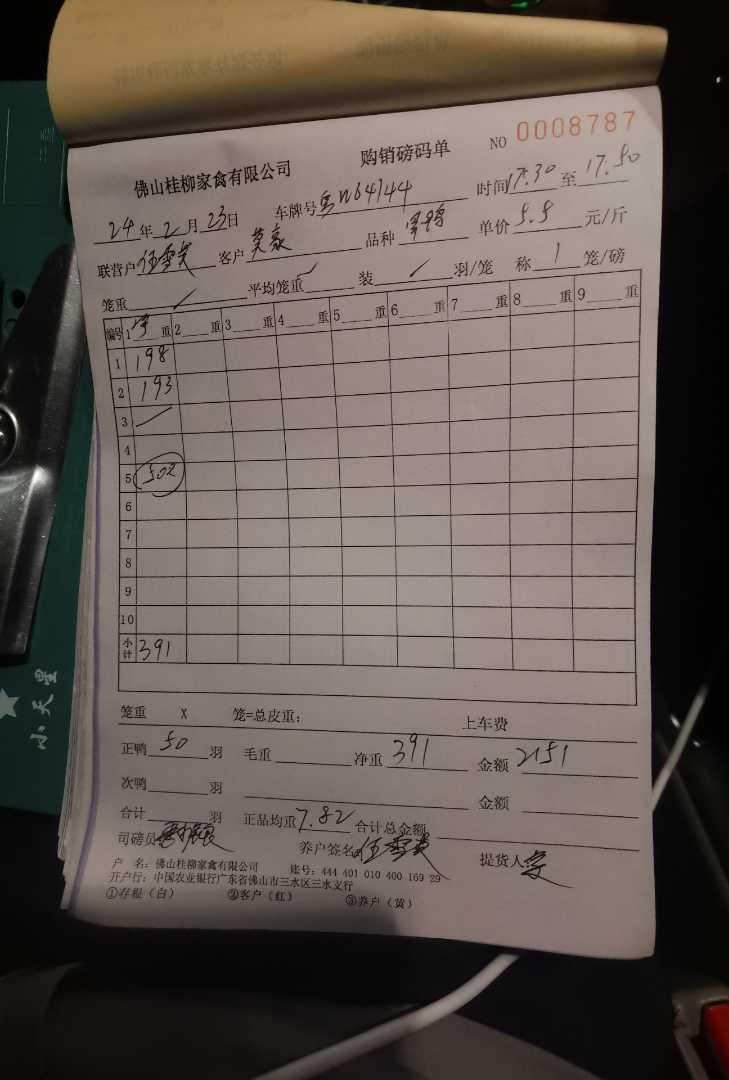 NO 0008787
佛山桂柳家禽有限公司 购销磅码单
24年2月23日 车牌号 W64744 时间17.30至17.50
联营户伍雪英 客户莫豪 品种 单价5.5元/斤
笼重 平均笼重 装 羽/笼 称1笼/磅
编号 1净重 2 重 3 重 4 重 5 重 6 重 7 重 8 重 9 重
1 198
2 193
3
4
5 502
6
7
8
9
10
小计 391
笼重 X 笼=总皮重: 上车费
正鸭50羽 毛重 净重391 金额2151
次鸭 羽 金额
合计 羽 正品均重7.82 合计总金额
司磅员 养户签名伍雪英 提货人
户 名: 佛山桂柳家禽有限公司 账号: 444 401 010 400 169 29
开户行: 中国农业银行广东省佛山市三水区三水支行
①存根(白) ②客户(红) ③养户(黄)
小天星